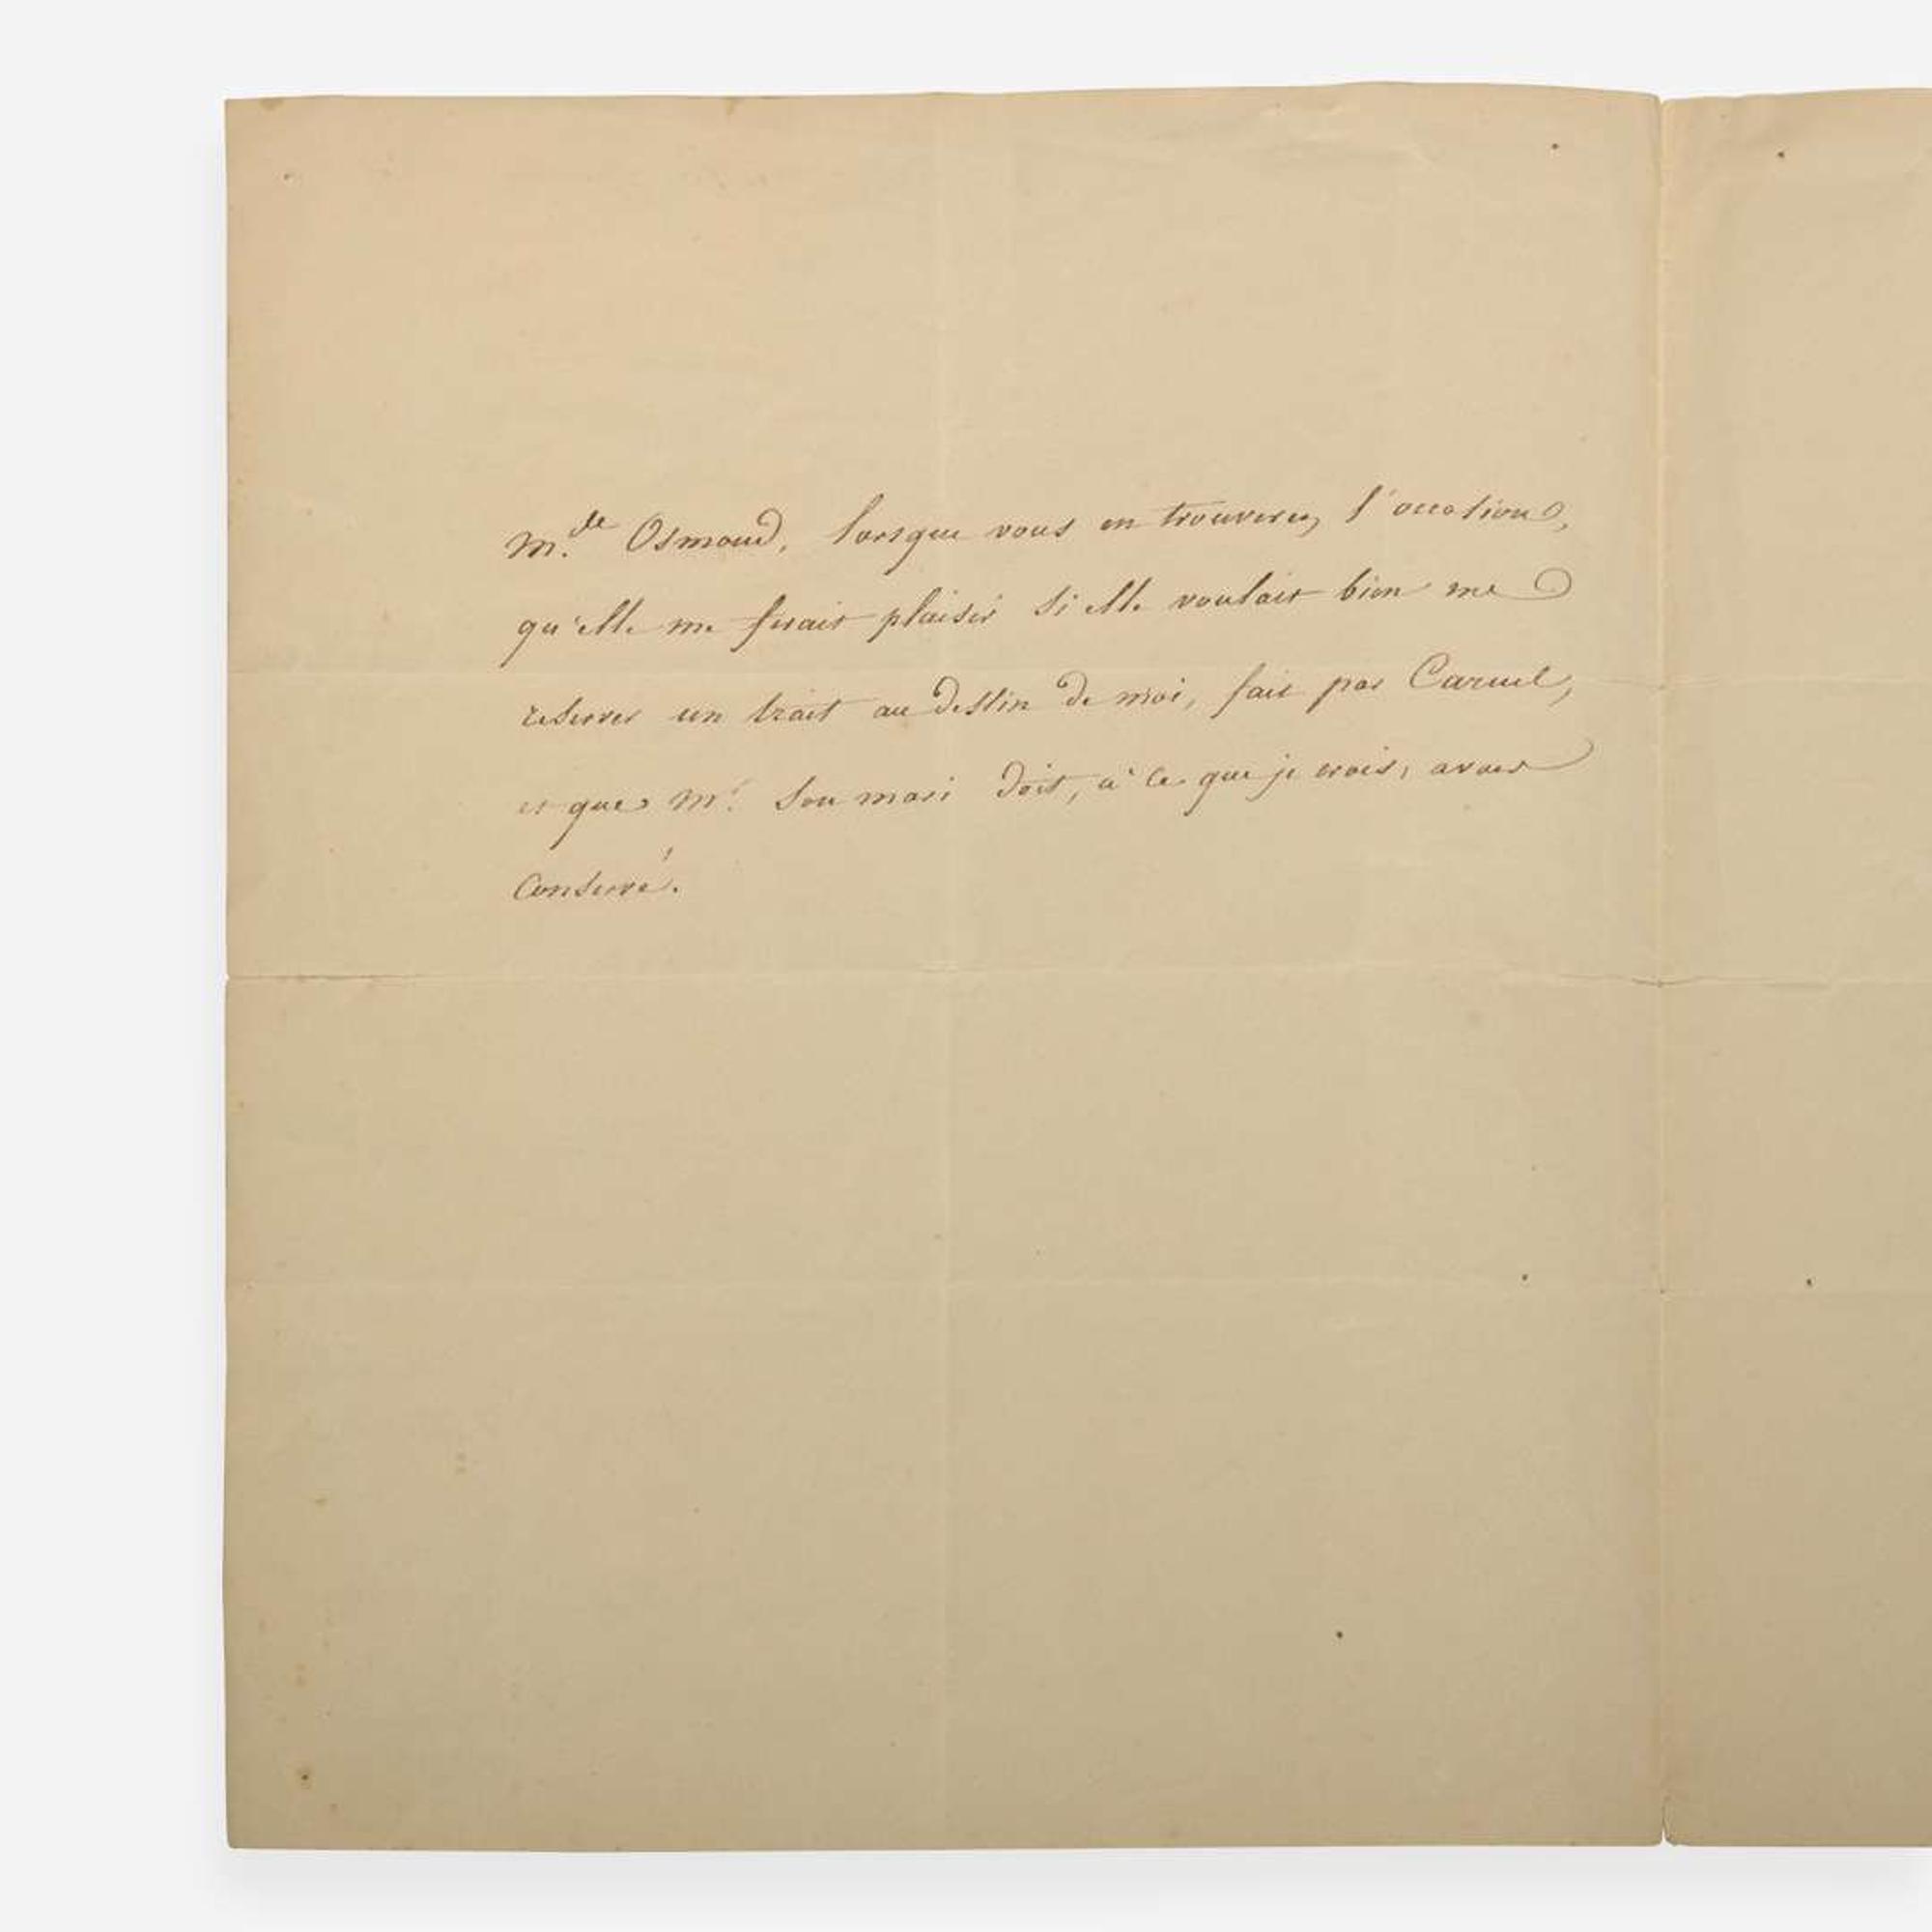 M.de Osmond, lorsque vous en trouverez l'occasion,
qu'elle me ferait plaisir si elle voulait bien me
reserver un trait au dessin de moi, fait par Caruel,
et que Mr. son mari doit, à ce que je crois, avoir
conservé.